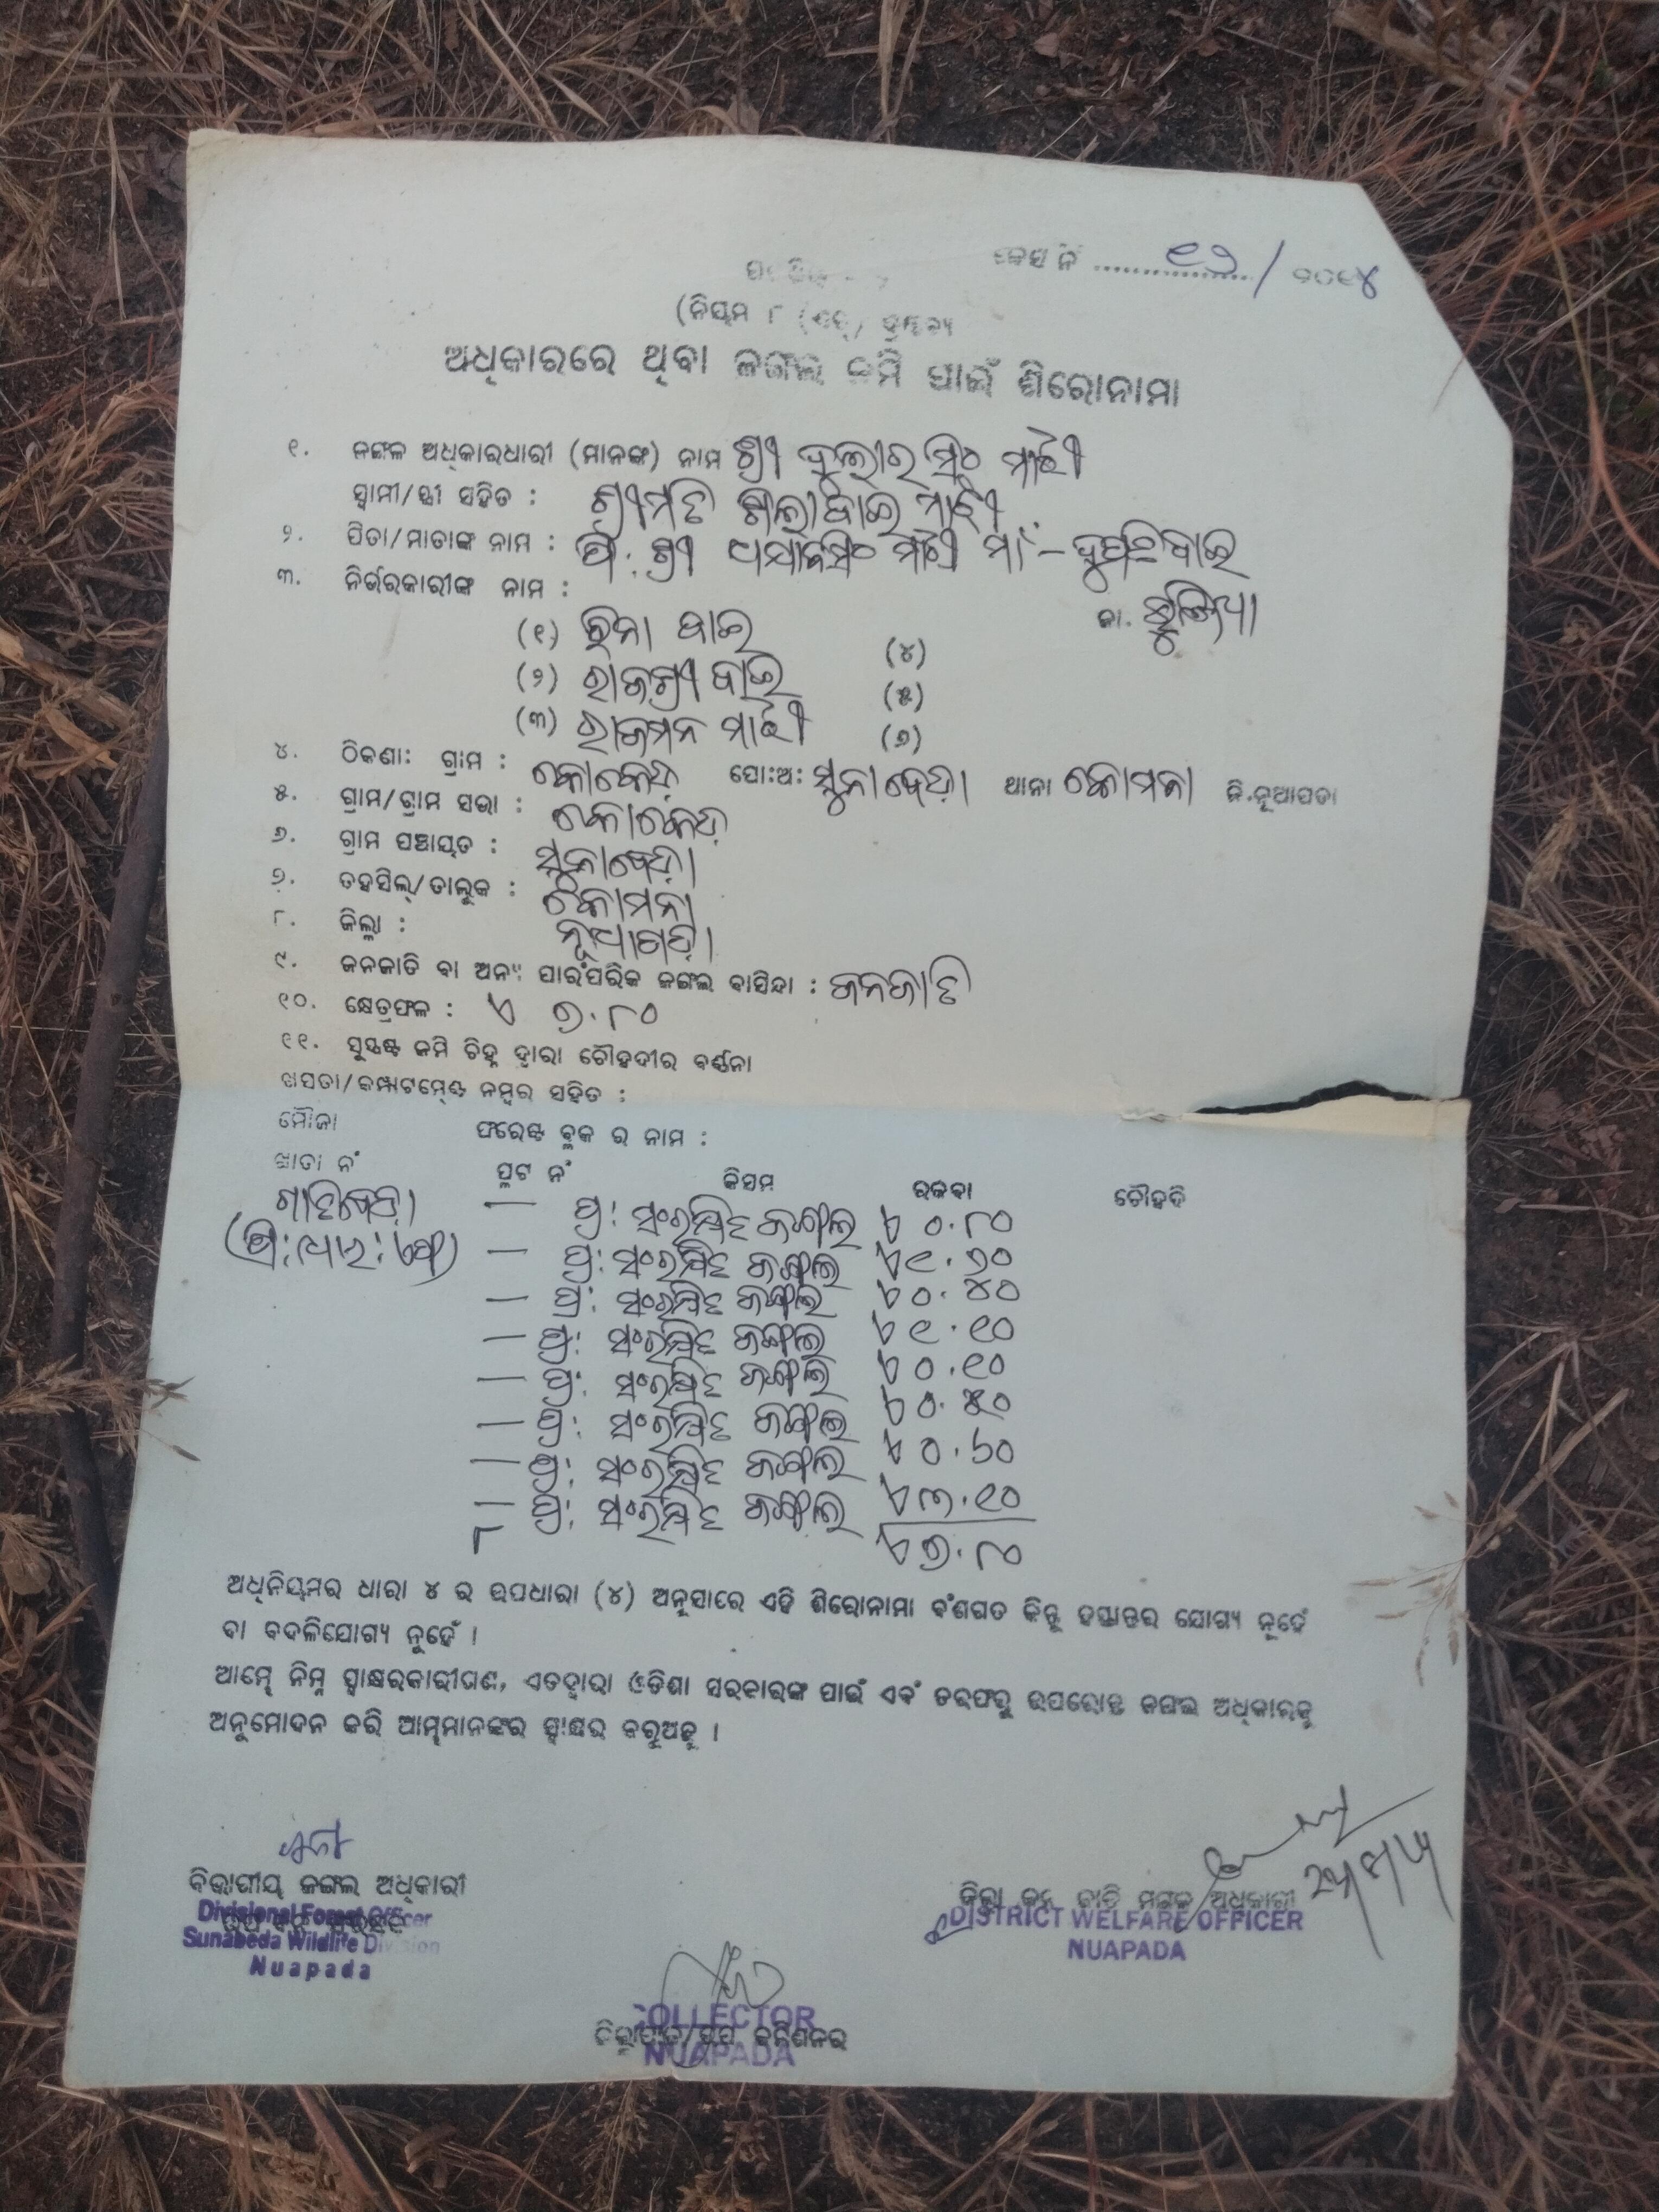 କେସ ନଂ ........ ୧୨ / ୨୦୧୪
(ନିୟମ ୮ (ଏଚ୍) ଦ୍ରଷ୍ଟବ୍ୟ
ଅଧିକାରରେ ଥିବା ଜଙ୍ଗଲ ଜମି ପାଇଁ ଶିରୋନାମା
୧. ଜଙ୍ଗଳ ଅଧିକାରଧାରୀ (ମାନଙ୍କ) ନାମ ଶ୍ରୀ ଦୁଲାର ସିଂ ମାଝୀ
ସ୍ୱାମୀ/ସ୍ତ୍ରୀ ସହିତ : ଶ୍ରୀମତି ଶୀଲାବାଇ ମାଝୀ
୨. ପିତା/ମାତାଙ୍କ ନାମ : ପି. ଶ୍ରୀ ମାଝୀ ମାଁ -
ଜା. ଭୁଞ୍ଜିଆ
୩. ନିର୍ଭରକାରୀଙ୍କ ନାମ :
(୧) ରିନା ବାଇ (୪)
(୨) ରାଜଶ୍ରୀ ବାଇ (୫)
(୩) ରାଜମନ ମାଝୀ (୬)
୪. ଠିକଣା: ଗ୍ରାମ : କୋକେଡ଼ା ପୋ:ଅ: ସୁନାବେଡ଼ା ଥାନା କୋମନା ଜି.ନୂଆପଡା
୫. ଗ୍ରାମ/ଗ୍ରାମ ସଭା : କୋକେଡ଼ା
୬. ଗ୍ରାମ ପଞ୍ଚାୟତ : ସୁନାବେଡ଼ା
୭. ତହସିଲ୍/ତାଲୁକ : କୋମନା
୮. ଜିଲ୍ଲା : ନୂଆପଡ଼ା
୯. ଜନଜାତି ବା ଅନ୍ୟ ପାରଂପରିକ ଜଙ୍ଗଲ ବାସିନ୍ଦା : ଜନଜାତି
୧୦. କ୍ଷେତ୍ରଫଳ : ଏ ୭.୮୦
୧୧. ସୁସ୍ପଷ୍ଟ ଜମି ଚିହ୍ନ ଦ୍ୱାରା ଚୌହଦୀର ବର୍ଣ୍ଣନା
ଖସଡା/କମ୍ପାଟମେଣ୍ଟ ନମ୍ବର ସହିତ :
ମୌଜା ଫରେଷ୍ଟ ବ୍ଲକ ର ନାମ :
ଖାତା ନଂ ପ୍ଲଟ ନଂ କିସମ ରକବା ଚୌହଦି
— ପ୍ର: ସଂରକ୍ଷିତ ଜଙ୍ଗଲ ଏ ୦.୮୦
(ପି:ଆର:ଏଫ୍) — ପ୍ର: ସଂରକ୍ଷିତ ଜଙ୍ଗଲ ଏ ୧.୨୦
— ପ୍ର: ସଂରକ୍ଷିତ ଜଙ୍ଗଲ ଏ ୦.୪୦
— ପ୍ର: ସଂରକ୍ଷିତ ଜଙ୍ଗଲ ଏ ୧.୧୦
— ପ୍ର: ସଂରକ୍ଷିତ ଜଙ୍ଗଲ ଏ ୦.୧୦
— ପ୍ର: ସଂରକ୍ଷିତ ଜଙ୍ଗଲ ଏ ୦.୫୦
— ପ୍ର: ସଂରକ୍ଷିତ ଜଙ୍ଗଲ ଏ ୦.୬୦
— ପ୍ର: ସଂରକ୍ଷିତ ଜଙ୍ଗଲ ଏ ୩.୧୦
୮ ଏ ୭.୮୦
ଅଧିନିୟମର ଧାରା ୪ ର ଉପଧାରା (୪) ଅନୁସାରେ ଏହି ଶିରୋନାମା ବଂଶଗତ କିନ୍ତୁ ହସ୍ତାନ୍ତର ଯୋଗ୍ୟ ନୁହେଁ
ବା ବଦଳିଯୋଗ୍ୟ ନୁହେଁ ।
ଆମ୍ଭେ ନିମ୍ନ ସ୍ୱାକ୍ଷରକାରୀଗଣ, ଏତଦ୍ୱାରା ଓଡିଶା ସରକାରଙ୍କ ପାଇଁ ଏବଂ ତରଫରୁ ଉପରୋକ୍ତ ଜଙ୍ଗଲ ଅଧିକାରକୁ
ଅନୁମୋଦନ କରି ଆମ୍ଭମାନଙ୍କର ସ୍ୱାକ୍ଷର କରୁଅଛୁ ।
ବିଭାଗୀୟ ଜଙ୍ଗଲ ଅଧିକାରୀ
Divisional Forest Officer
Sunabeda Wildlife Division
Nuapada
ଜିଲ୍ଲା ମଙ୍ଗଳ ଅଧିକାରୀ
DISTRICT WELFARE OFFICER
NUAPADA
COLLECTOR
ଜିଲ୍ଲାପାଳ/ଉପ କମିଶନର
NUAPADA